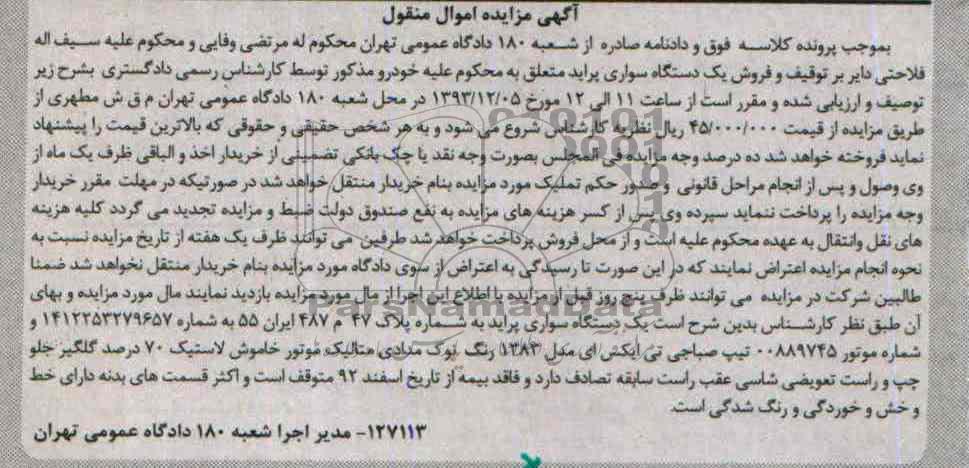 آگهی مزایده اموال منقول
بموجب پرونده کلاسه فوق و دادنامه صادره از شعبه ۱۸۰ دادگاه عمومی تهران محکوم له مرتضی وفایی و محکوم علیه سیف اله
فلاحتی دایر بر توقیف و فروش یک دستگاه سواری پراید متعلق به محکوم علیه خودرو مذکور توسط کارشناس رسمی دادگستری بشرح زیر
توصیف و ارزیابی شده و مقرر است از ساعت ۱۱ الی ۱۲ مورخ ۱۳۹۳/۱۲/۰۵ در محل شعبه ۱۸۰ دادگاه عمومی تهران م ق ش مطهری از
طریق مزایده از قیمت ۴۵/۰۰۰/۰۰۰ ریال نظریه کارشناس شروع می شود و به هر شخص حقیقی و حقوقی که بالاترین قیمت را پیشنهاد
نماید فروخته خواهد شد ده درصد وجه مزایده فی المجلس بصورت وجه نقد یا چک بانکی تضمینی از خریدار اخذ و الباقی ظرف یک ماه از
وی وصول و پس از انجام مراحل قانونی و صدور حکم تملیک مورد مزایده بنام خریدار منتقل خواهد شد در صورتیکه در مهلت مقرر خریدار
وجه مزایده را پرداخت ننماید سپرده وی پس از کسر هزینه های مزایده به نفع صندوق دولت ضبط و مزایده تجدید می گردد کلیه هزینه
های نقل وانتقال به عهده محکوم علیه است و از محل فروش پرداخت خواهد شد طرفین می توانند ظرف یک هفته از تاریخ مزایده نسبت به
نحوه انجام مزایده اعتراض نمایند که در این صورت تا رسیدگی به اعتراض از سوی دادگاه مورد مزایده بنام خریدار منتقل نخواهد شد ضمنا
طالبین شرکت در مزایده می توانند ظرف پنج روز قبل از مزایده با اطلاع این اجرا از مال مورد مزایده بازدید نمایند مال مورد مزایده و بهای
آن طبق نظر کارشناس بدین شرح است یک دستگاه سواری پراید به شماره پلاک ۴۷ م ۴۸۷ ایران ۵۵ به شماره ۱۴۱۲۲۵۳۲۷۹۶۵۷ و
شماره موتور ۰۰۸۸۹۷۴۵ تیپ صباجی تی ایکس ای مدل ۱۳۸۳ رنگ نوک مدادی متالیک موتور خاموش لاستیک ۷۰ درصد گلگیر جلو
چپ و راست تعویضی شاسی عقب راست سابقه تصادف دارد و فاقد بیمه از تاریخ اسفند ۹۲ متوقف است و اکثر قسمت های بدنه دارای خط
و خش و خوردگی و رنگ شدگی است.
۱۲۷۱۱۳- مدیر اجرا شعبه ۱۸۰ دادگاه عمومی تهران
ParsNamadData